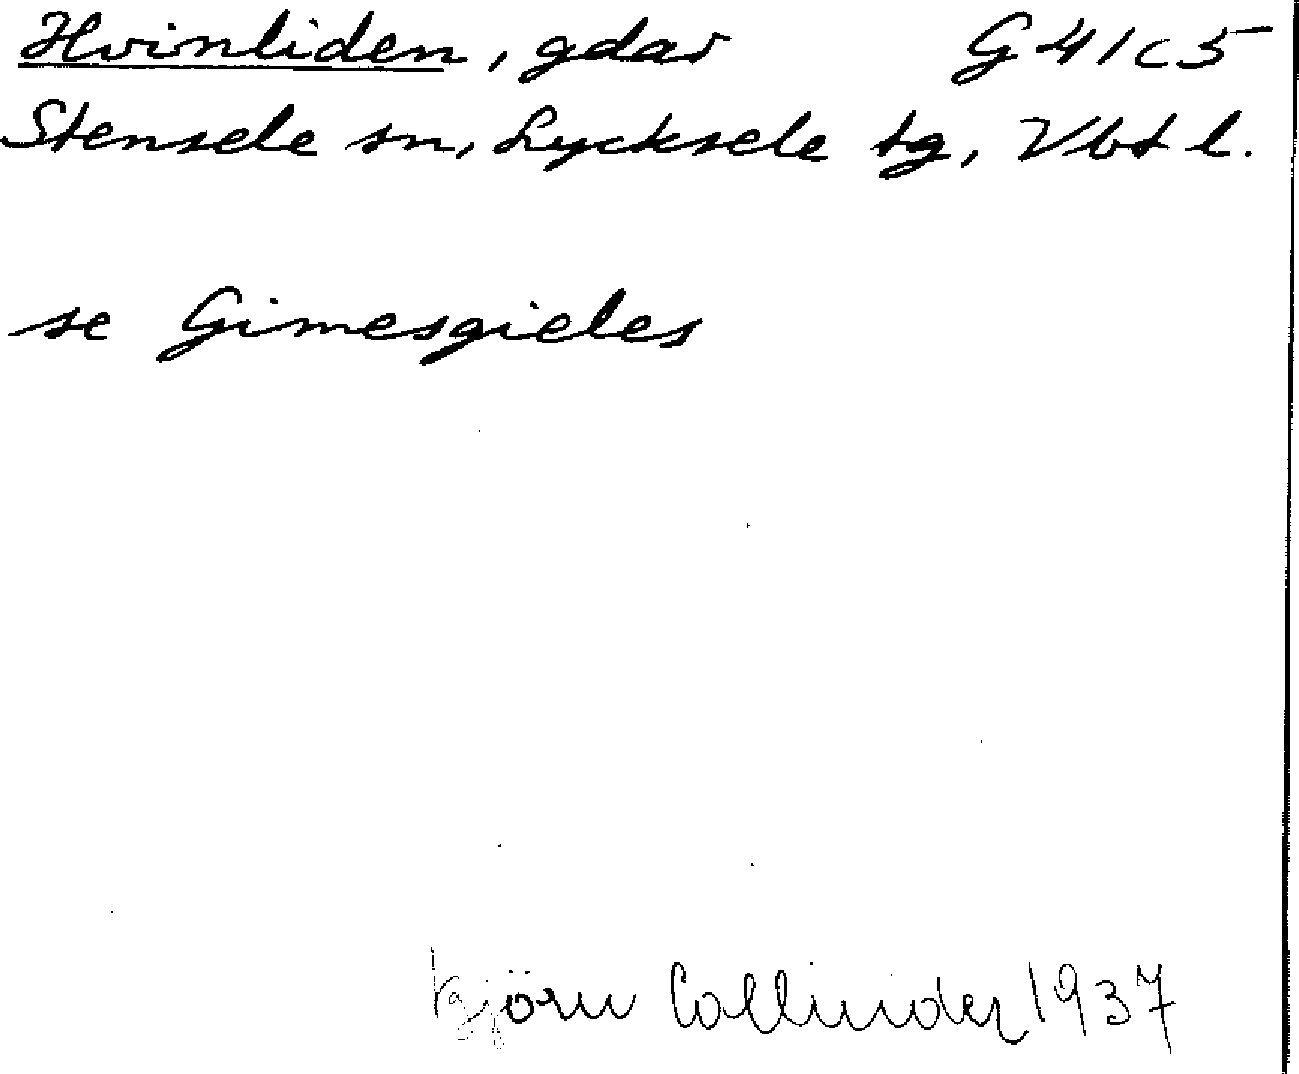 Hvinliden, gdar G 41 c 5
Stensele sn, Lycksele tg, Vbt l.
se Gimesgieles
Björn Collinder 1937